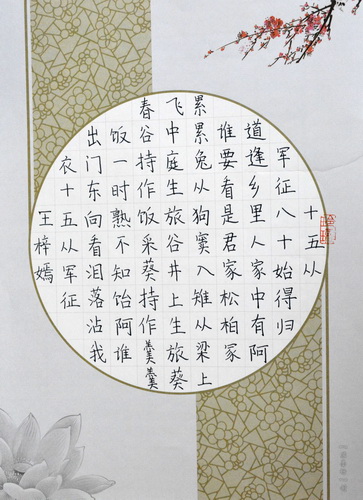 十五从
军征八十始得归
道逢乡里人家中有阿
谁要看是君家松柏冢
累累兔从狗窦入雉从梁上
飞中庭生旅谷井上生旅葵
春谷持作饭采葵持作羹羹
饭一时熟不知饴阿谁
出门东向看泪落沾我
衣十五从军征
王梓嫣